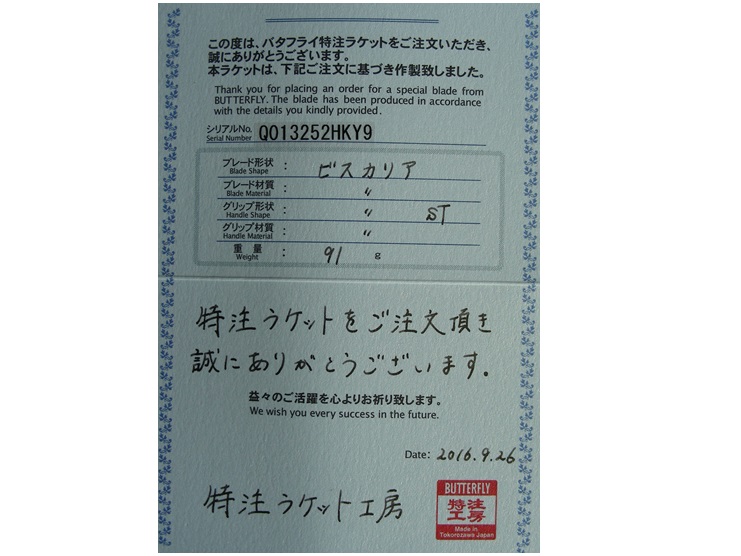 この度は、バタフライ特注ラケットをご注文いただき、
誠にありがとうございます。
本ラケットは、下記ご注文に基づき作製致しました。
Thank you for placing an order for a special blade from
BUTTERFLY. The blade has been produced in accordance
with the details you kindly provided.
シリアルNo. Serial Number Q013252HKY9
ブレード形状 Blade Shape : ビスカリア
ブレード材質 Blade Material : 〃
グリップ形状 Handle Shape : 〃 ST
グリップ材質 Handle Material : 〃
重量 Weight : 91 g
特注ラケットをご注文頂き
誠にありがとうございます.
益々のご活躍を心よりお祈り致します。
We wish you every success in the future.
Date: 2016.9.26
特注ラケット工房
BUTTERFLY
特注
工房
Made in
Tokorozawa Japan